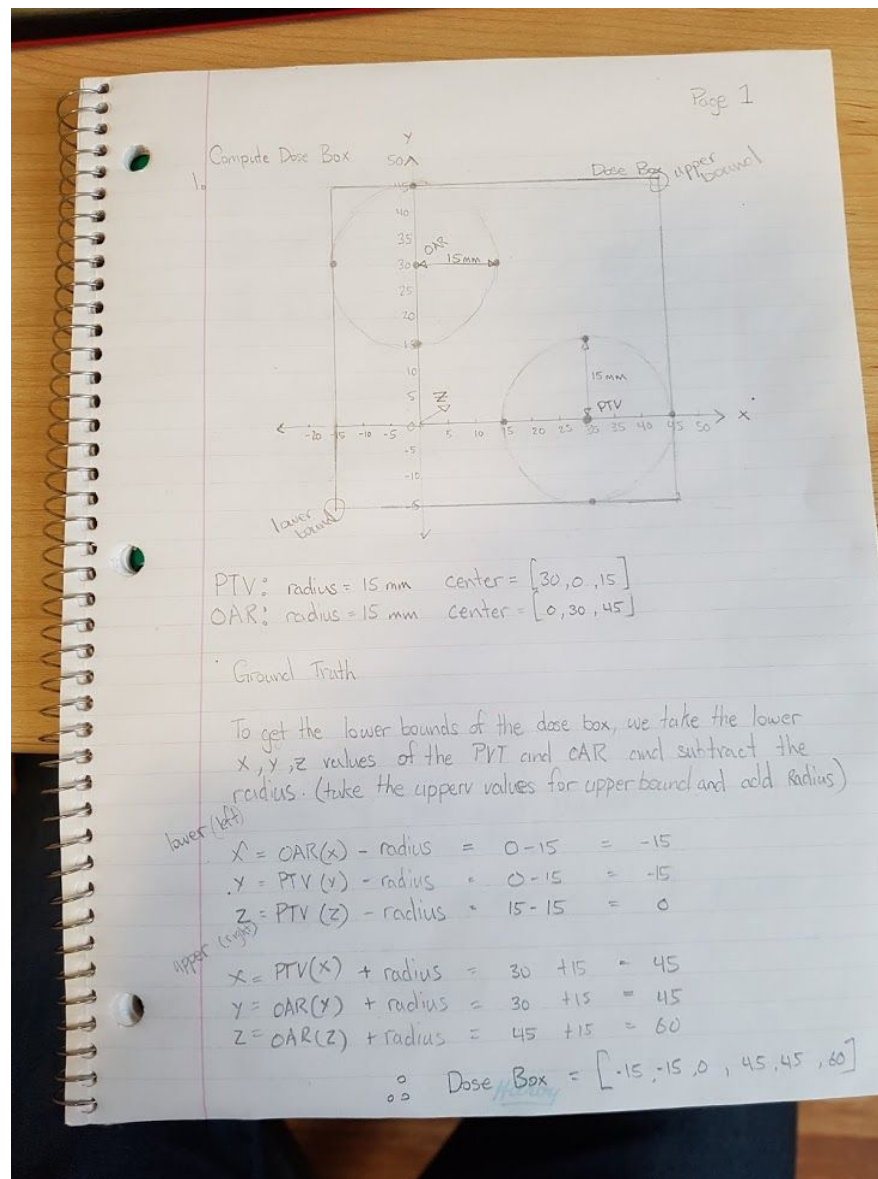 Page 1
Compute Dose Box
1.
Y
50
Dose Box
upper bound
45
40
35
OAR
30
15mm
25
20
15
10
15 mm
5
Z
PTV
-20 -15 -10 -5 0 5 10 15 20 25 30 35 40 45 50 X
-5
-10
lower bound
PTV: radius = 15 mm center = [30, 0, 15]
OAR: radius = 15 mm center = [0, 30, 45]
Ground Truth
To get the lower bounds of the dose box, we take the lower
x, y, z values of the PVT and OAR and subtract the
radius. (take the upper values for upper bound and add Radius)
lower (left)
X = OAR(x) - radius = 0-15 = -15
Y = PTV (Y) - radius = 0-15 = -15
Z = PTV (Z) - radius = 15-15 = 0
upper (right)
X = PTV(X) + radius = 30 +15 = 45
Y = OAR(Y) + radius = 30 +15 = 45
Z = OAR(Z) + radius = 45 +15 = 60
∴ Dose Box = [-15, -15, 0, 45, 45, 60]
Hilroy